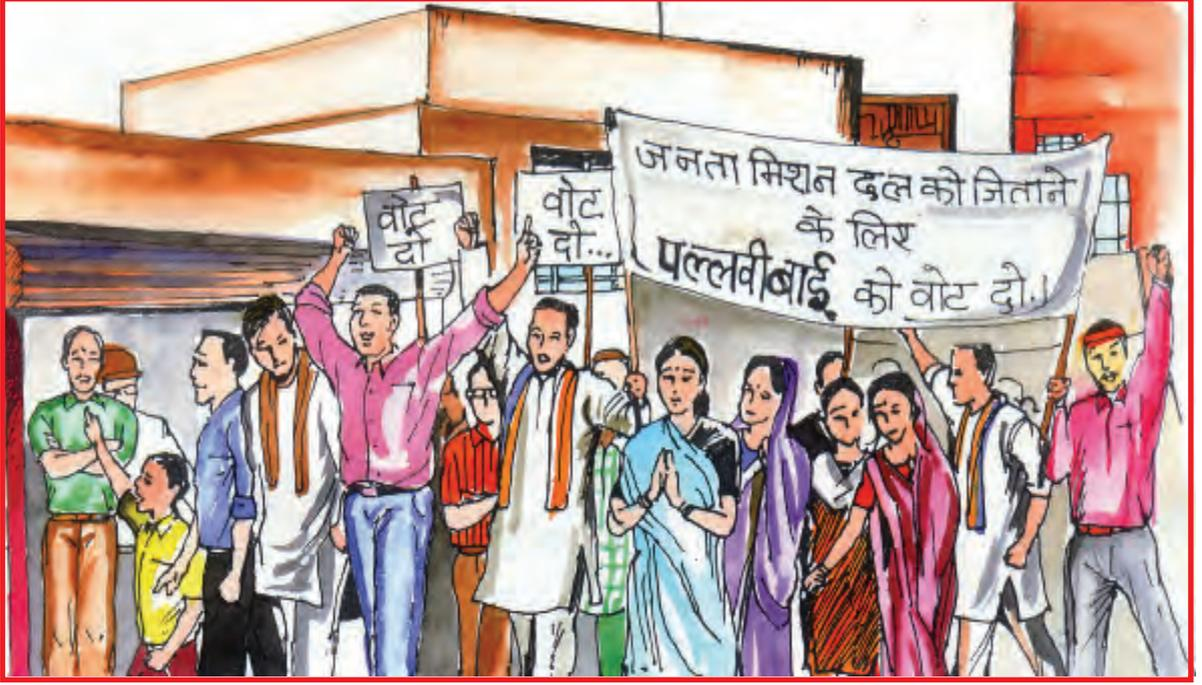 वोट
दो
वोट
दो...
जनता मिशन दल को जिताने
के लिए
पल्लवीबाई को वोट दो..!